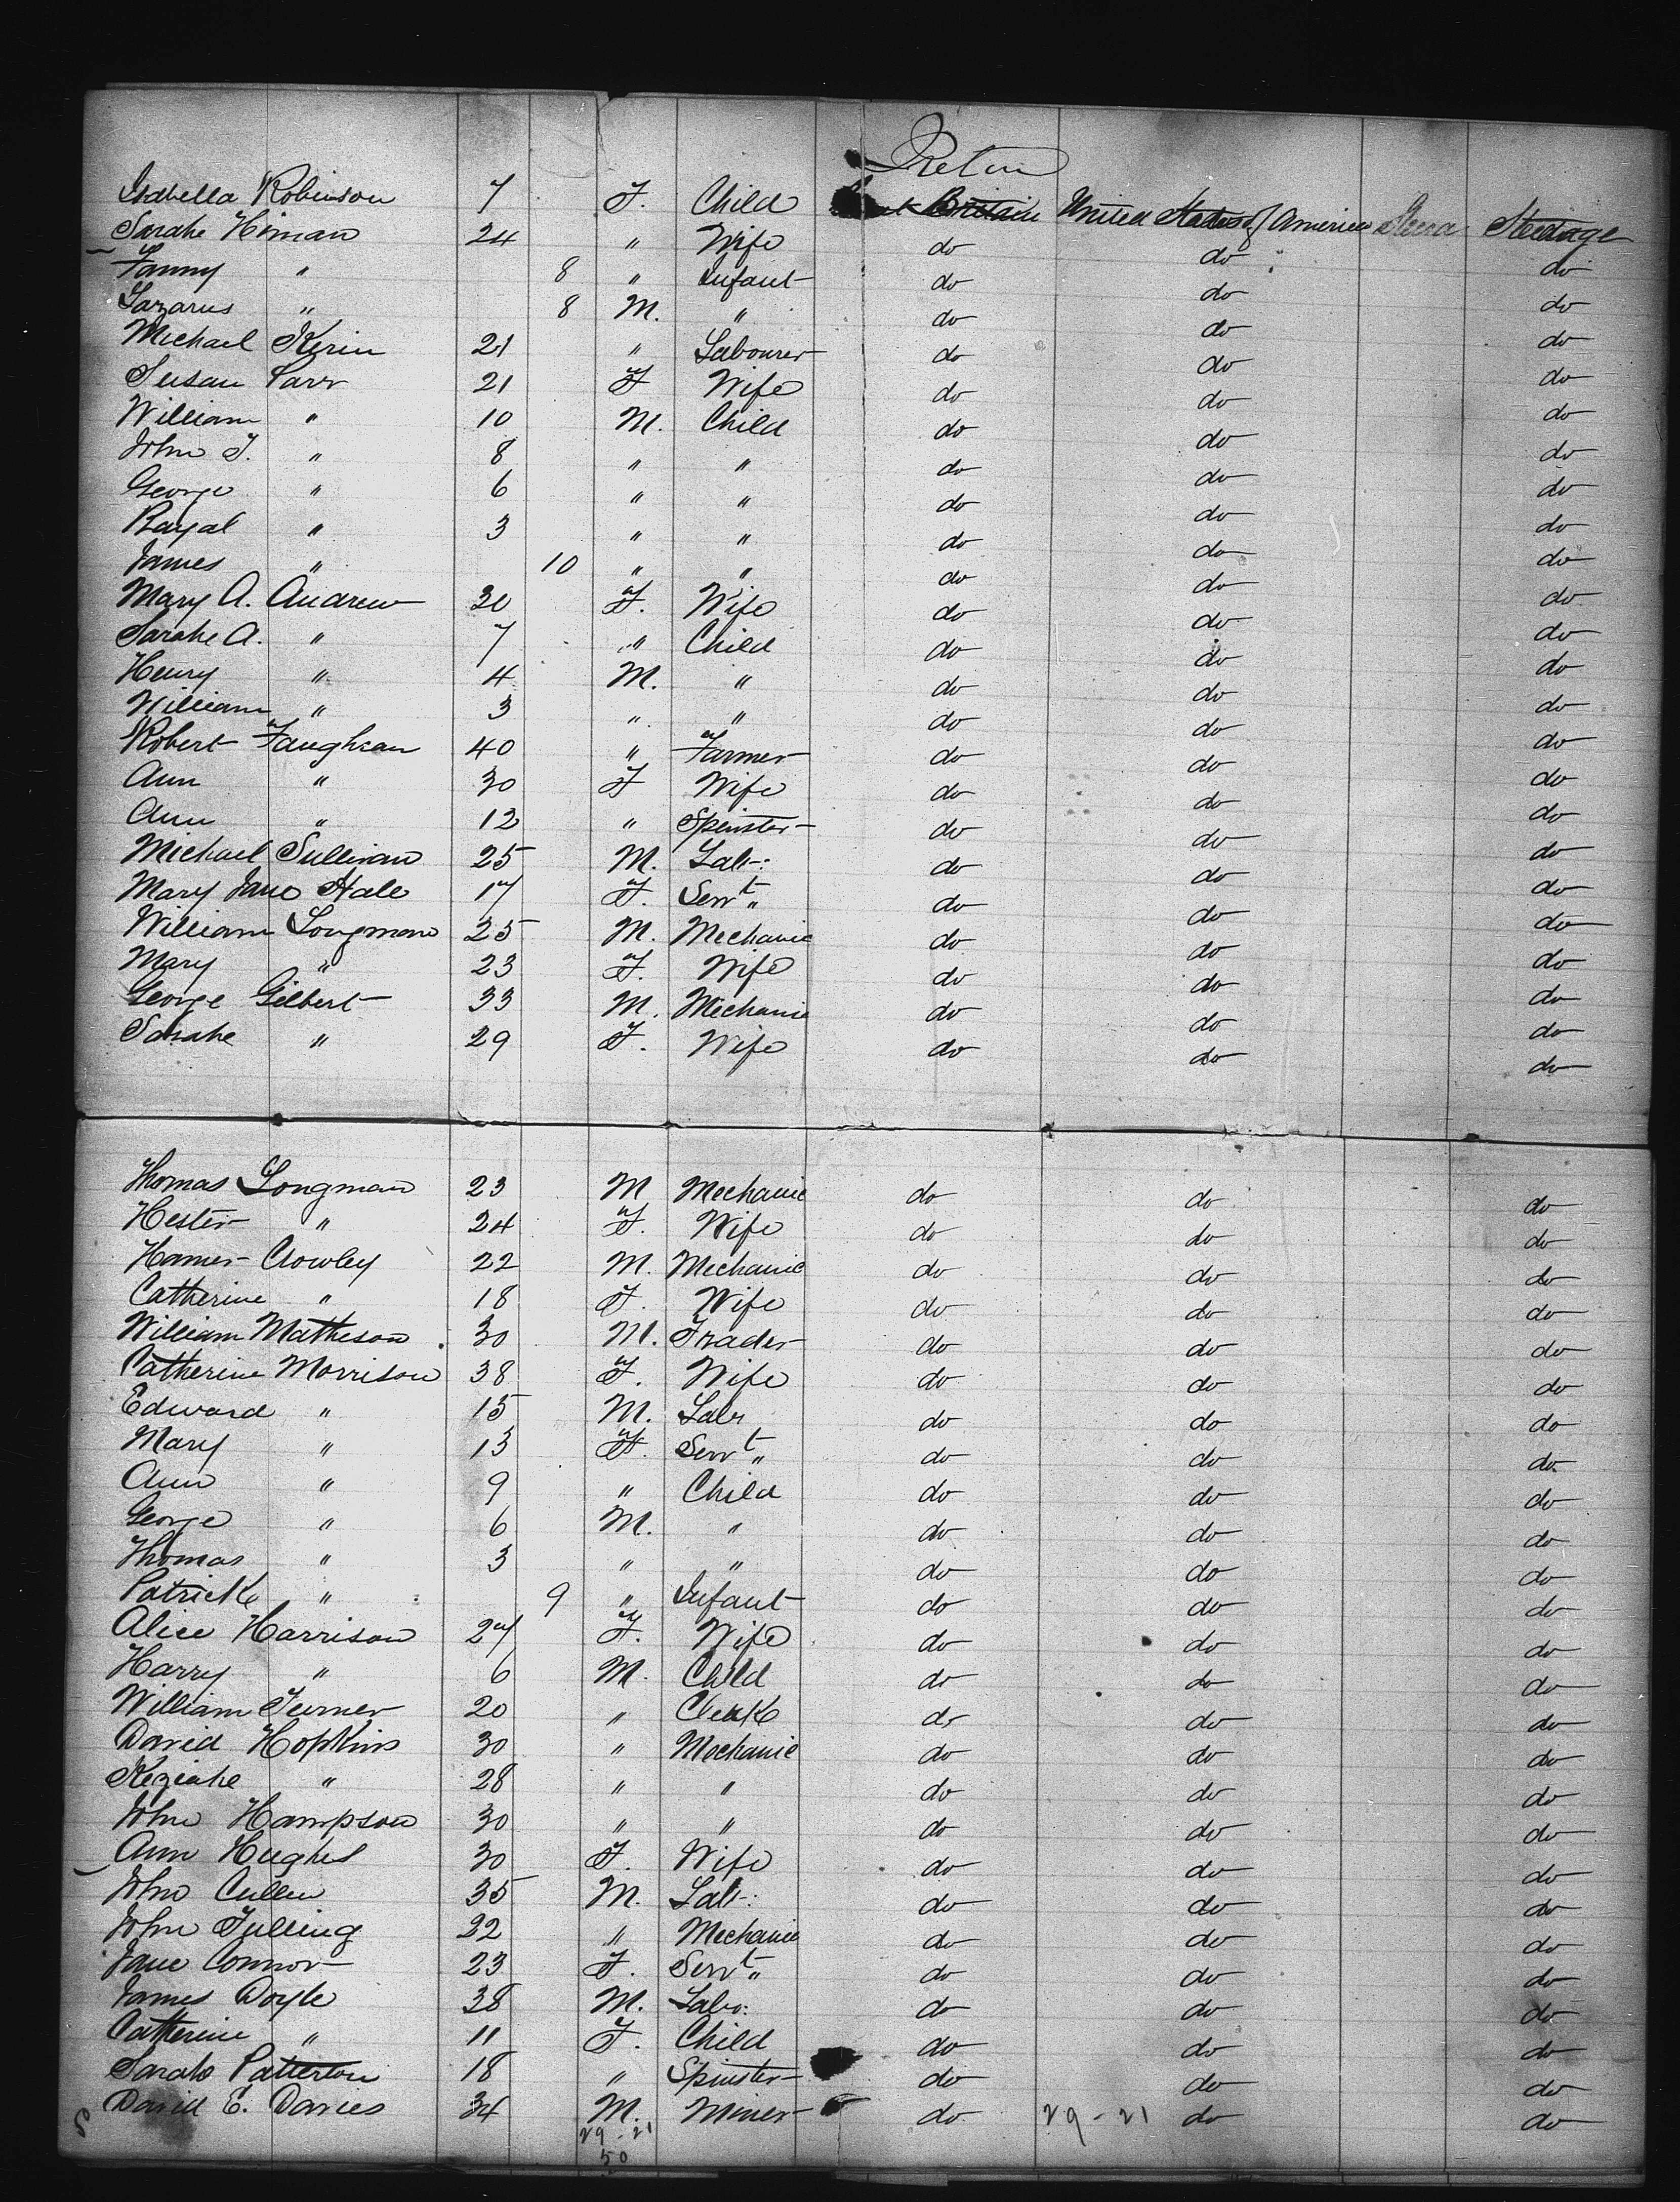 Isabella Robinson 7 F. Child Britain United States of America Steerage
Sarah Himan 24 " Wife do do do
Fanny " 8 " Infant do do do
Lazarus " 8 M. " do do do
Michael Kirin 21 " Labourer do do do
Susan Parr 21 F Wife do do do
William " 10 M. Child do do do
John T. " 8 " " do do do
George " 6 " " do do do
Rayal " 3 " " do do do
James " 10 " " do do do
Mary A. Andrew 30 F. Wife do do do
Sarah A. " 7 " Child do do do
Henry " 4 M. " do do do
William " 3 " " do do do
Robert Faughnan 40 " Farmer do do do
Ann " 30 F Wife do do do
Ann " 12 " Spinster do do do
Michael Sullivan 25 M. Lab: do do do
Mary Jane Hale 17 F. Servt " do do do
William Longman 25 M. Mechanic do do do
Mary " 23 F. Wife do do do
George Gilbert 33 M. Mechanic do do do
Sarah " 29 F. Wife do do do
Thomas Longman 23 M Mechanic do do do
Hester " 24 F. Wife do do do
Crowley 22 M. Mechanic do do do
Catherine " 18 F. Wife do do do
William Matheson 30 M. Trader do do do
Catherine Morrison 38 F. Wife do do do
Edward " 15 M. Labr do do do
Mary " 13 F. Servt " do do do
Ann " 9 " Child do do do
George " 6 M. " do do do
Thomas " 3 " " do do do
Patrick " 9 " Infant do do do
Alice Harrison 27 F. Wife do do do
Harry " 6 M. Child do do do
William Turner 20 " Clerk do do do
David Hopkins 30 " Mechanic do do do
Keziah " 28 " " do do do
John Hampson 30 " " do do do
Ann Hughes 30 F. Wife do do do
John Cullen 35 M. Lab: do do do
John Tulling 22 " Mechanic do do do
Jane Connor 23 F. Servt " do do do
James Doyle 38 M. Labr: do do do
Catherine " 11 F. Child do do do
Sarah Patterton 18 " Spinster do do do
David E. Davies 34 M. Miner do 29-21 do do
29-21
50